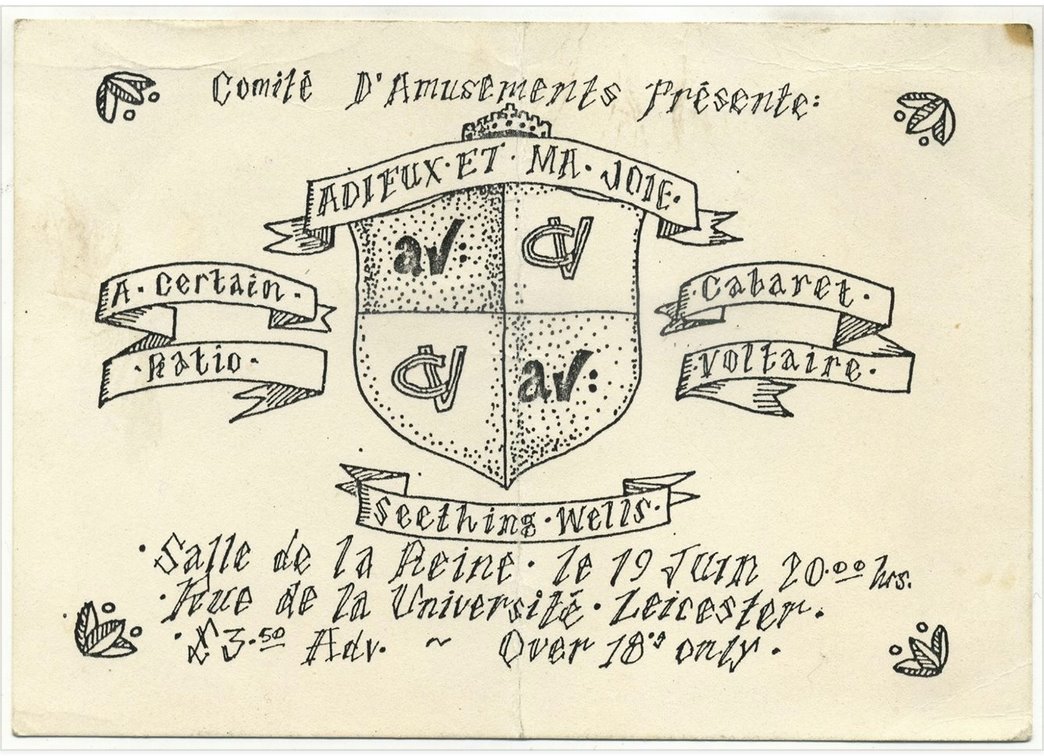 Comité D'Amusements Présente:
ADIEUX·ET·MA·JOIE·
av: CV
A·Certain·
Cabaret·
·Ratio·
Voltaire·
CV av:
Seething·Wells·
·Salle de la Reine· le 19 Juin 20·00 hrs.
·Rue de la Université· Leicester.
·£3·50 Adv. ~ Over 18's only.